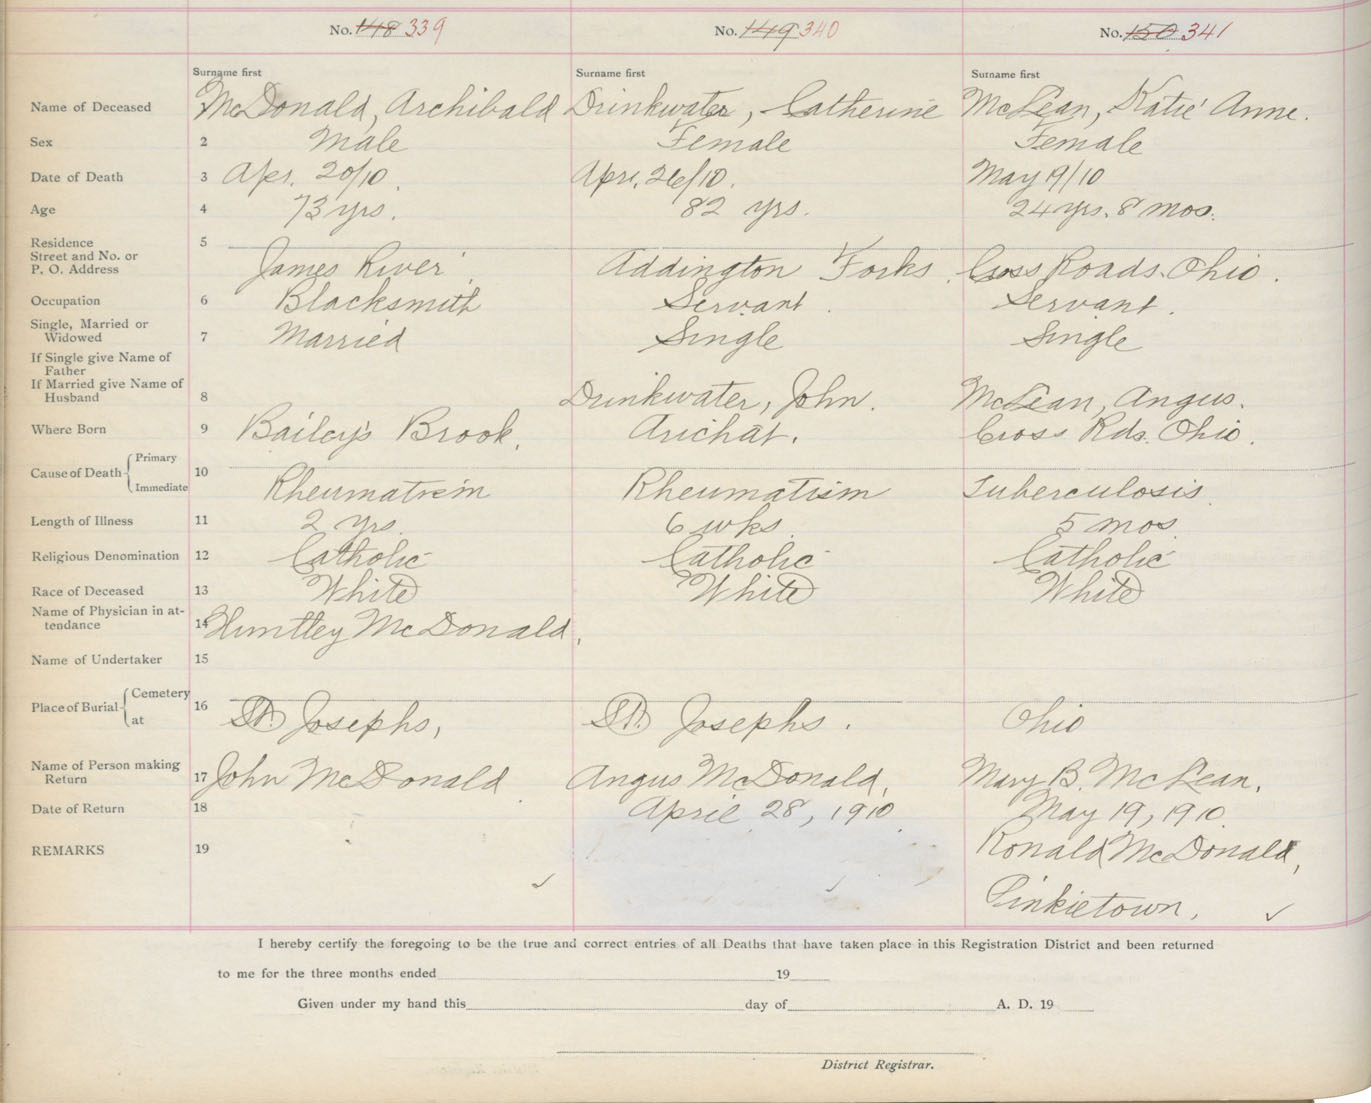 No. 148 339 No. 149 340 No. 150 341
Surname first Surname first Surname first
Name of Deceased McDonald, Archibald Drinkwater, Catherine McLean, Katie Anne.
Sex 2 Male Female Female
Date of Death 3 Apr. 20/10. Apr. 26/10. May 19/10
Age 4 73 yrs. 82 yrs. 24 yrs. 8 mos.
Residence 5
Street and No. or
P. O. Address James River Addington Forks. Cross Roads. Ohio.
Occupation 6 Blacksmith Servant. Servant.
Single, Married or
Widowed 7 Married Single Single
If Single give Name of
Father
If Married give Name of
Husband 8 Drinkwater, John. McLean, Angus.
Where Born 9 Bailey's Brook, Arichat. Cross Rds. Ohio.
Cause of Death { Primary 10
Immediate Rheumatism Rheumatism Tuberculosis
Length of Illness 11 2 yrs. 6 wks. 5 mos
Religious Denomination 12 Catholic Catholic Catholic
Race of Deceased 13 White White White
Name of Physician in at-
tendance 14 Huntley McDonald,
Name of Undertaker 15
Place of Burial { Cemetery 16
at St. Josephs, St. Josephs. Ohio
Name of Person making
Return 17 John McDonald. Angus McDonald, Mary B. McLean,
Date of Return 18 April 28, 1910. May 19, 1910.
REMARKS 19 Ronald McDonald,
Pinkietown.
I hereby certify the foregoing to be the true and correct entries of all Deaths that have taken place in this Registration District and been returned
to me for the three months ended 19
Given under my hand this day of A. D. 19
District Registrar.